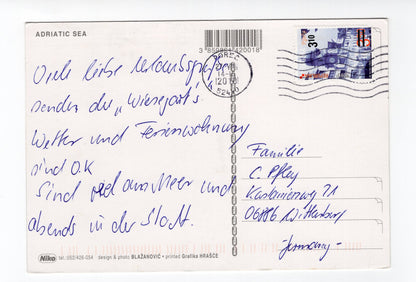 ADRIATIC SEA
Viele liebe Urlaubsgrüße
senden die „Wiesejat's
Wetter und Ferienwohnung
sind O.K
Sind viel am Meer und
abends in der Stadt.
POREČ
14
52440
310
Familie
C. Pfley
Kastanienweg 71
Wittenburg
Germany
Niko tel: 052/426-034 design & photo BLAŽANOVIĆ • printed Grafika HRAŠĆE